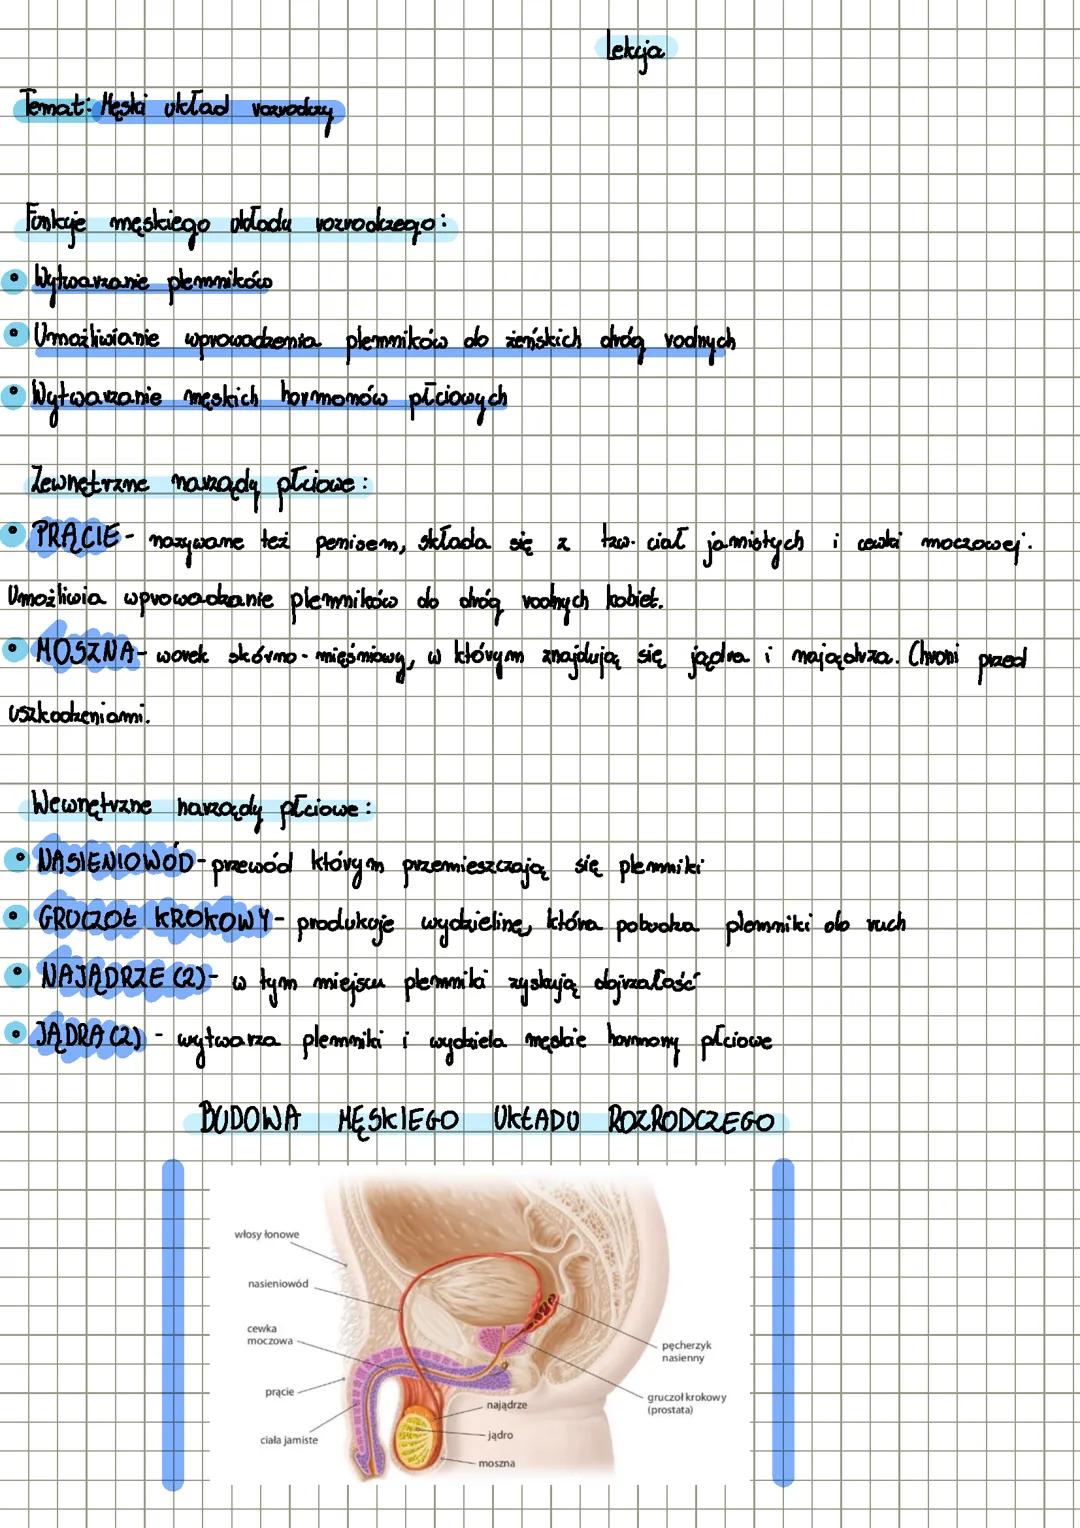 Lekcja
Temat: Męski układ rozrodczy
Funkcje męskiego układu rozrodczego:
• Wytwarzanie plemników
• Umożliwianie wprowadzenia plemników do żeńskich dróg rodnych
• Wytwarzanie męskich hormonów płciowych
Zewnętrzne narządy płciowe:
• PRĄCIE - nazywane też penisem, składa się z tzw. ciał jamistych i cewki moczowej.
Umożliwia wprowadzanie plemników do dróg rodnych kobiet.
• MOSZNA - worek skórno-mięśniowy, w którym znajdują się jądra i najądrza. Chroni przed
uszkodzeniami.
Wewnętrzne narządy płciowe:
• NASIENIOWÓD - przewód którym przemieszczają się plemniki
• GRUCZOŁ KROKOWY - produkuje wydzielinę, która pobudza plemniki do ruch
• NAJĄDRZE (2) - w tym miejscu plemniki zyskują dojrzałość
• JĄDRA (2) - wytwarza plemniki i wydziela męskie hormony płciowe
BUDOWA MĘSKIEGO UKŁADU ROZRODCZEGO
włosy łonowe
nasieniowód
cewka
moczowa
pęcherzyk
nasienny
prącie
gruczoł krokowy
(prostata)
najądrze
jądro
ciała jamiste
moszna